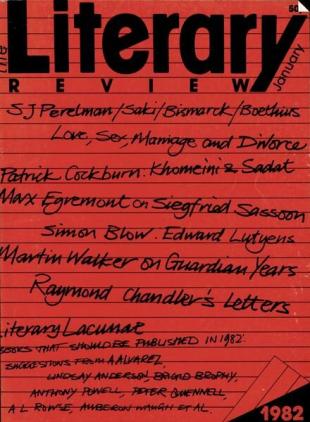 the
Literary
50
REVIEW
January
SJ Perelman/Saki/Bismarck/Boethius
Love, Sex, Marriage and Divorce
Patrick Cockburn: Khomeini & Sadat
Max Egremont on Siegfried Sassoon
Simon Blow: Edward Lutyens
Martin Walker on Guardian Years
Raymond Chandler's Letters
Literary Lacunae
BOOKS THAT SHOULD BE PUBLISHED IN 1982:
SUGGESTIONS FROM A ALVAREZ,
LINDSAY ANDERSON, BRIGID BROPHY,
ANTHONY POWELL, PETER QUENNELL,
A L ROWSE, AUBERON WAUGH ET AL.
1982